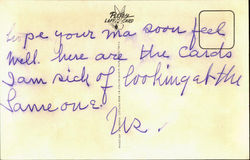 hope your ma soon feel
well. here are the cards
I am sick of looking at the
same one.